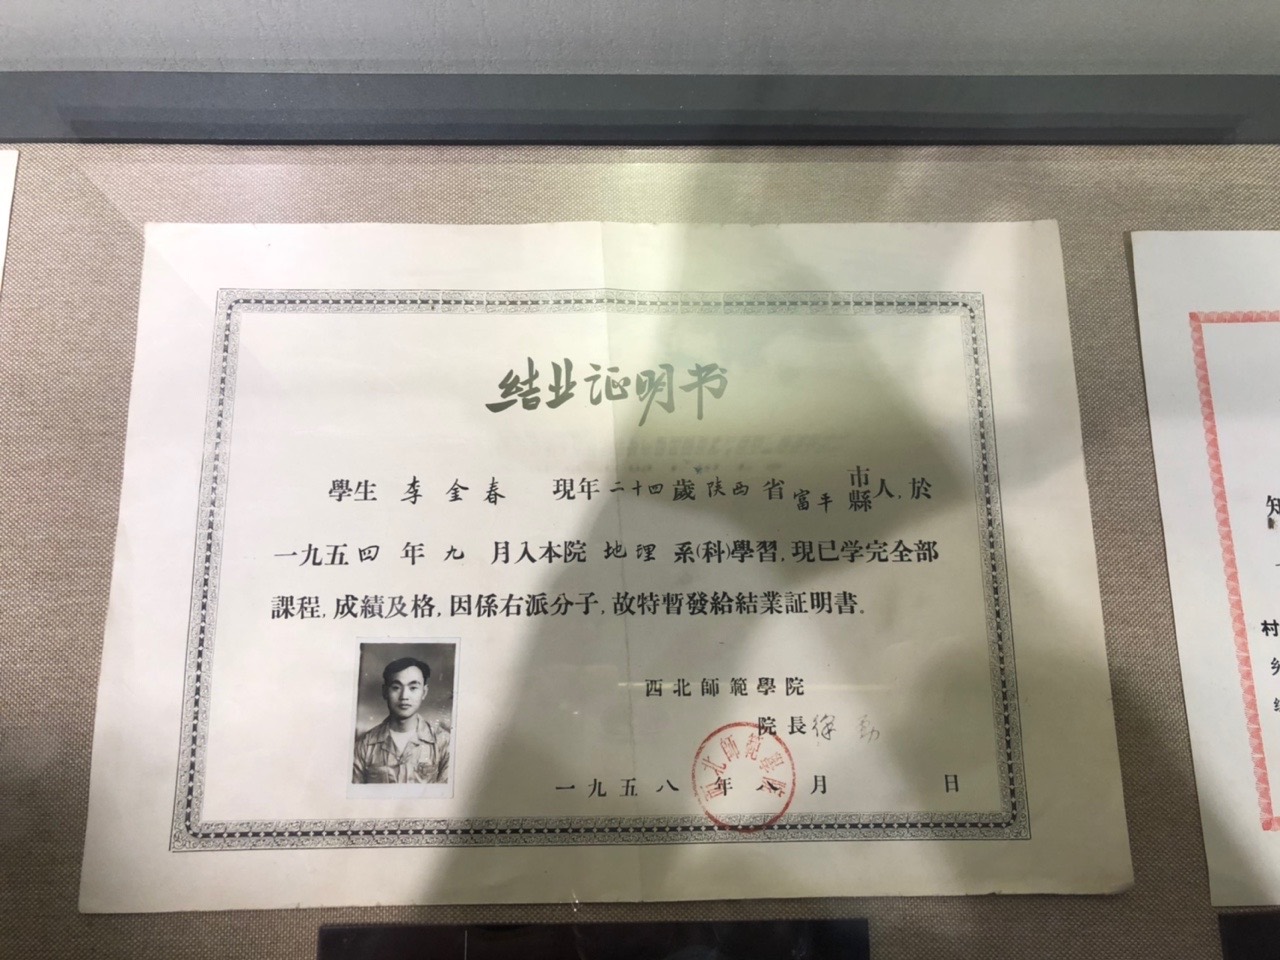 结业证明书
學生 李金春 現年二十四歲陕西省富平市縣人,於
一九五四年九月入本院地理系(科)學習,現已学完全部
課程,成績及格,因係右派分子,故特暫發給結業証明書。
西北師範學院
院長徐劲
西北師範學院
一九五八年八月 日
知
村